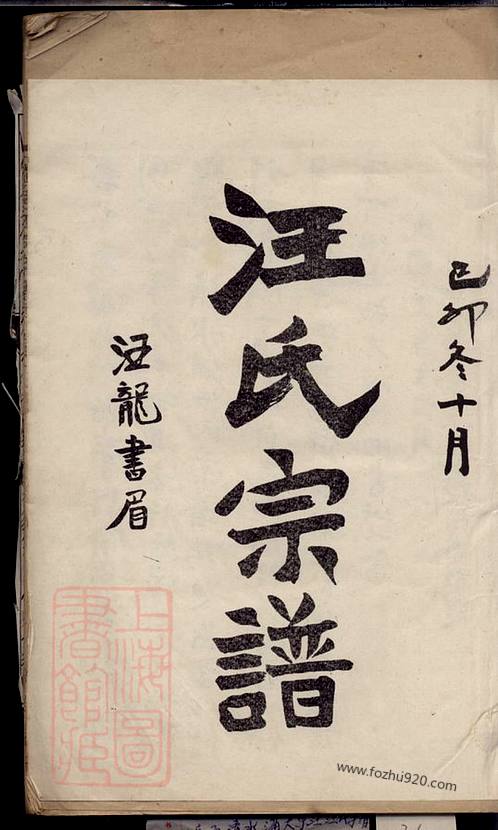 己卯冬十月
汪氏宗譜
汪龍書眉
上海圖
書館藏
www.fozhu920.com